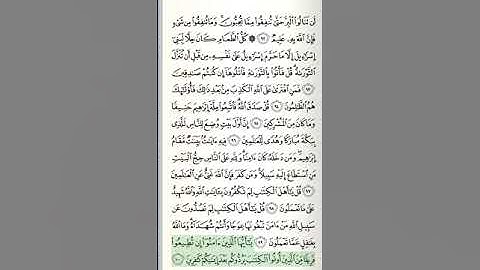 لَن تَنَالُوا۟ ٱلْبِرَّ حَتَّىٰ تُنفِقُوا۟ مِمَّا تُحِبُّونَ ۚ وَمَا تُنفِقُوا۟ مِن شَىْءٍ
فَإِنَّ ٱللَّهَ بِهِۦ عَلِيمٌ ٩٢ ۞ كُلُّ ٱلطَّعَامِ كَانَ حِلًّا لِّبَنِىٓ
إِسْرَٰٓءِيلَ إِلَّا مَا حَرَّمَ إِسْرَٰٓءِيلُ عَلَىٰ نَفْسِهِۦ مِن قَبْلِ أَن تُنَزَّلَ
ٱلتَّوْرَىٰةُ ۗ قُلْ فَأْتُوا۟ بِٱلتَّوْرَىٰةِ فَٱتْلُوهَآ إِن كُنتُمْ صَٰدِقِينَ
٩٣ فَمَنِ ٱفْتَرَىٰ عَلَى ٱللَّهِ ٱلْكَذِبَ مِنۢ بَعْدِ ذَٰلِكَ فَأُو۟لَٰٓئِكَ
هُمُ ٱلظَّٰلِمُونَ ٩٤ قُلْ صَدَقَ ٱللَّهُ ۗ فَٱتَّبِعُوا۟ مِلَّةَ إِبْرَٰهِيمَ حَنِيفًا
وَمَا كَانَ مِنَ ٱلْمُشْرِكِينَ ٩٥ إِنَّ أَوَّلَ بَيْتٍ وُضِعَ لِلنَّاسِ لَلَّذِى
بِبَكَّةَ مُبَارَكًا وَهُدًى لِّلْعَٰلَمِينَ ٩٦ فِيهِ ءَايَٰتٌۢ بَيِّنَٰتٌ مَّقَامُ
إِبْرَٰهِيمَ ۖ وَمَن دَخَلَهُۥ كَانَ ءَامِنًا ۗ وَلِلَّهِ عَلَى ٱلنَّاسِ حِجُّ ٱلْبَيْتِ
مَنِ ٱسْتَطَاعَ إِلَيْهِ سَبِيلًا ۚ وَمَن كَفَرَ فَإِنَّ ٱللَّهَ غَنِىٌّ عَنِ ٱلْعَٰلَمِينَ
٩٧ قُلْ يَٰٓأَهْلَ ٱلْكِتَٰبِ لِمَ تَكْفُرُونَ بِـَٔايَٰتِ ٱللَّهِ وَٱللَّهُ شَهِيدٌ
عَلَىٰ مَا تَعْمَلُونَ ٩٨ قُلْ يَٰٓأَهْلَ ٱلْكِتَٰبِ لِمَ تَصُدُّونَ عَن
سَبِيلِ ٱللَّهِ مَنْ ءَامَنَ تَبْغُونَهَا عِوَجًا وَأَنتُمْ شُهَدَآءُ ۗ وَمَا ٱللَّهُ
بِغَٰفِلٍ عَمَّا تَعْمَلُونَ ٩٩ يَٰٓأَيُّهَا ٱلَّذِينَ ءَامَنُوٓا۟ إِن تُطِيعُوا۟
فَرِيقًا مِّنَ ٱلَّذِينَ أُوتُوا۟ ٱلْكِتَٰبَ يَرُدُّوكُم بَعْدَ إِيمَٰنِكُمْ كَٰفِرِينَ ١٠٠